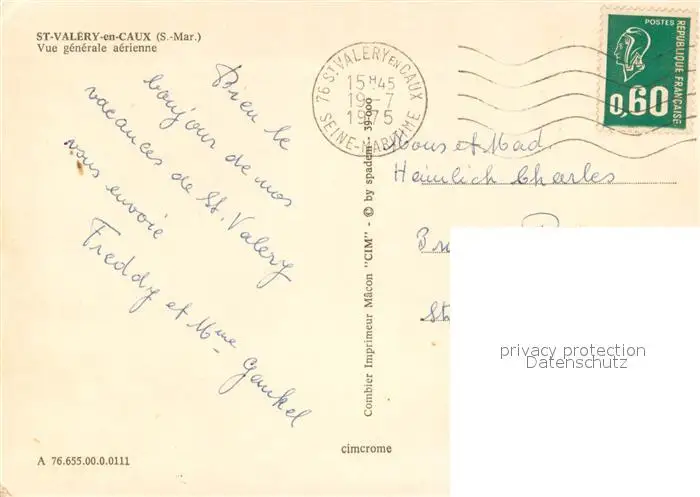 ST-VALERY-en-CAUX (S.-Mar.)
Vue générale aérienne
Bien le
bonjour de nos
vacances de St. Valery
vous envoie
Freddy et Mme Gankel
76 ST VALERY EN CAUX
15H45
19-7
1975
SEINE-MARITIME
POSTES
REPUBLIQUE FRANÇAISE
0,60
Mous et Mad.
Heinlich Charles
Combier Imprimeur Mâcon "CIM" - © by spadem - 39-000
privacy protection
Datenschutz
cimcrome
A 76.655.00.0.0111